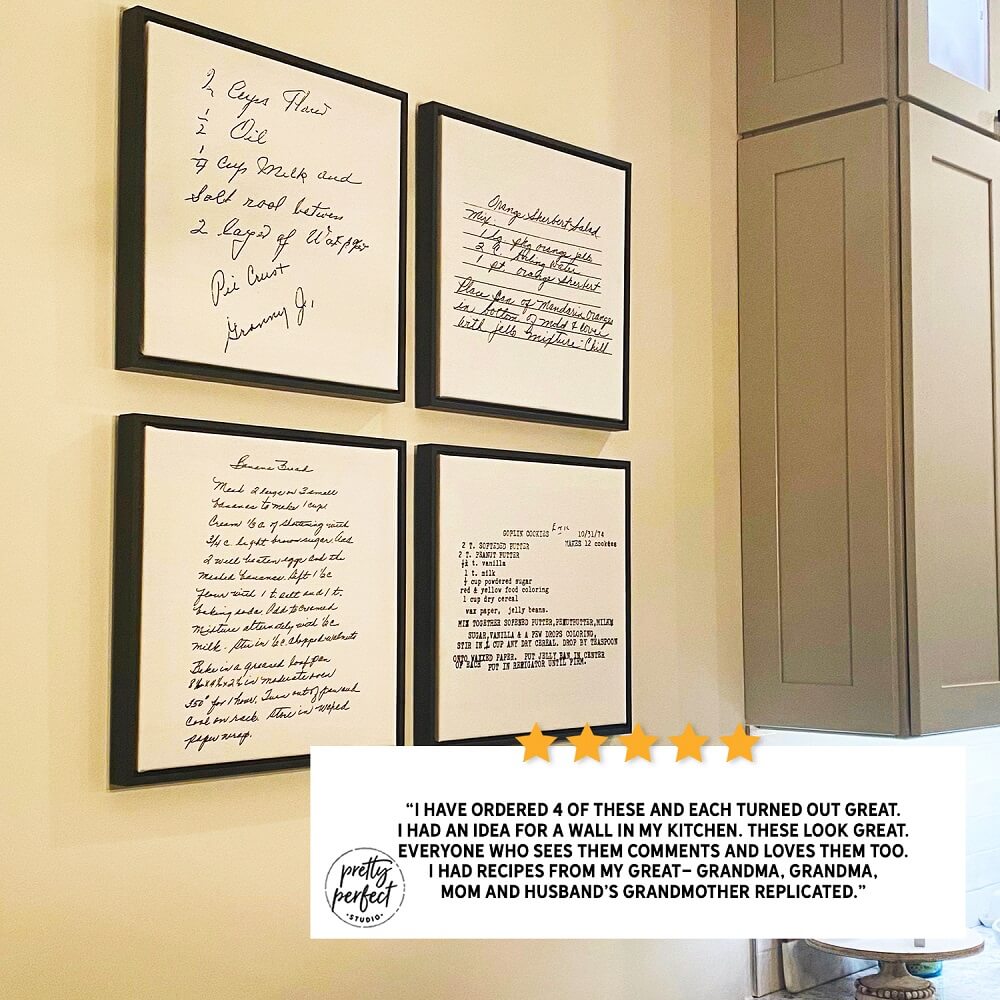 2 Cups Flour
1/2 Oil
1/4 Cup Milk and
Salt rool between
2 layer of Waxpaper
Pie Crust
Granny J.
Orange Sherbert Salad
Mix.
1 lg. pkg orange jello
2 c. boiling water
1 pt. orange Sherbert
Place Can of Mandarin Oranges
in bottom of mold & cover
with jello mixture - Chill
Banana Bread
Mash 2 large or 3 small
bananas to make 1 cup
Cream 1/2 c. of shortening with
3/4 c. light brown sugar. Add
2 well beaten eggs and the
mashed bananas. Sift 1 1/2 c
flour with 1 t. salt and 1 t.
baking soda. Add to creamed
mixture alternately with 1/2 c
milk. Stir in 1/2 c. chopped walnuts
Bake in a greased loaf pan
in moderate oven
350° for 1 hour. Turn out of pan and
Cool on rack. Store in waxed
paper wrap.
GOPLIN COOKIES 10/31/74
MAKES 12 cookies
2 T. SOFTENED BUTTER
2 T. PEANUT BUTTER
t. vanilla
1 t. milk
cup powdered sugar
red & yellow food coloring
1 cup dry cereal
wax paper, jelly beans.
MIX TOGETHER SOFENED BUTTER, PENUTBUTTER, MILK
SUGAR, VANILLA & A FEW DROPS COLORING,
STIR IN 1 CUP ANY DRY CEREAL. DROP BY TEASPOON
ONTO WAXXED PAPER. PUT JELLY BAN IN CENTER
OF BALL PUT IN REFIGATOR UNTIL FIRM.
“I HAVE ORDERED 4 OF THESE AND EACH TURNED OUT GREAT.
I HAD AN IDEA FOR A WALL IN MY KITCHEN. THESE LOOK GREAT.
EVERYONE WHO SEES THEM COMMENTS AND LOVES THEM TOO.
I HAD RECIPES FROM MY GREAT– GRANDMA, GRANDMA,
MOM AND HUSBAND’S GRANDMOTHER REPLICATED.”
pretty
perfect
•STUDIO•